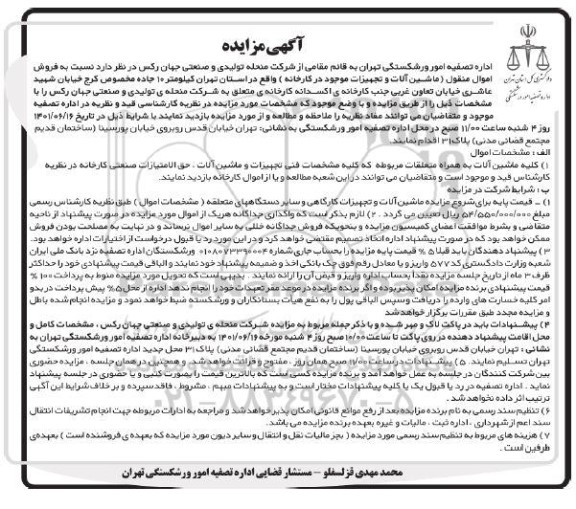 آگهی مزایده
اداره تصفیه امور ورشکستگی تهران به قائم مقامی از شرکت منحله تولیدی و صنعتی جهان رکس در نظر دارد نسبت به فروش
اموال منقول (ماشین آلات و تجهیزات موجود در کارخانه) واقع در استان تهران کیلومتر ۱۰ جاده مخصوص کرج خیابان شهید
عاشری خیابان تعاون غربی جنب کارخانه ی اکسدانه کارخانه ی متعلق به شرکت منحله ی تولیدی و صنعتی جهان رکس را با
مشخصات ذیل را از طریق مزایده و با وضع موجود که مشخصات مورد مزایده در نظریه کارشناسی قید و نظریه در اداره تصفیه
موجود و متقاضیان می توانند مفاد نظریه را ملاحظه و مطالعه و از مورد مزایده بازدید نمایند با شرایط ذیل در تاریخ ۱۴۰۱/۰۶/۱۶
روز ۴ شنبه ساعت ۱۱/۰۰ صبح در محل اداره تصفیه امور ورشکستگی به نشانی: تهران خیابان قدس روبروی خیابان پورسینا (ساختمان قدیم
مجتمع قضائی مدنی) پلاک ۳۱ اقدام نمایند.
الف: مشخصات اموال
۱) کلیه ماشین آلات به همراه متعلقات مربوطه که کلیه مشخصات فنی تجهیزات و ماشین آلات، حق الامتیازات صنعتی کارخانه در نظریه
کارشناس قید و موجود است و متقاضیان می توانند در این شعبه مطالعه و یا از اموال کارخانه بازدید نمایند.
ب: شرایط شرکت در مزایده
۱) - قیمت پایه برای شروع مزایده ماشین آلات و تجهیزات کارگاهی و سایر دستگاههای متعلقه (مشخصات اموال) طبق نظریه کارشناس رسمی
مبلغ ۵۴/۵۵۰/۰۰۰/۰۰۰ ریال تعیین می گردد. ۲) لازم بذکر است که واگذاری جداگانه هریک از اموال مورد مزایده در صورت پیشنهاد از ناحیه
متقاضی و بشرط موافقت اعضای کمیسیون مزایده و بنحویکه فروش جداگانه خللی به سایر اموال نرساند و در نهایت به مصلحت بودن فروش
ممکن خواهد بود که در صورت پیشنهاد اداره اتخاذ تصمیم مقتضی خواهد کرد و در این مورد رد یا قبول درخواست از اختیارات اداره خواهد بود.
۳) پیشنهاد دهندگان باید قبلا ۵٪ قیمت پایه مزایده را بحساب جاری شماره ۰۱۰۸۰۷۳۳۹۰۰۰۴ ورشکستگان اداره تصفیه نزد بانک ملی ایران
شعبه وزارت دادگستری کد ۵۷۷ واریز و یا معادل رقم فوق چک بانکی اخذ و ضمیمه پیشنهاد خود نمایند و الباقی قیمت پیشنهادی خود را حداکثر
ظرف ۳ ماه از تاریخ جلسه مزایده نقدا بحساب اداره واریز و فیش آن را ارائه نمایند. بدیهی است که تحویل مورد مزایده منوط به پرداخت ۱۰۰٪
قیمت پیشنهادی برنده مزایده امکان پذیر بوده و اگر برنده مزایده در موعد مقرر تعهدات خود را انجام ندهد اداره از محل ۵٪ پیش پرداخت در بدو
امر کلیه خسارت های وارده را دریافت وسپس الباقی پول را به نفع هیأت بستانکاران و ورشکسته ضبط خواهد نمود و مزایده انجام شده باطل
و مزایده مجدد طبق مقررات برگزار خواهد شد
۴) پیشنهادات باید در پاکت لاک و مهر شده و با ذکر جمله مربوط به مزایده شرکت منحله ی تولیدی و صنعتی جهان رکس، مشخصات کامل و
محل اقامت پیشنهاد دهنده در روی پاکت تا ساعت ۱۰/۰۰ صبح روز ۴ شنبه مورخه ۱۴۰۱/۰۶/۱۶ به دبیرخانه اداره تصفیه امور ورشکستگی تهران به
نشانی: تهران خیابان قدس روبروی خیابان پورسینا (ساختمان قدیم مجتمع قضائی مدنی) پلاک ۳۱ محل جدید اداره تصفیه امور ورشکستگی
تهران تسلیم نمایند. ۵) پیشنهادات در ساعت ۱۱/۰۰ صبح همان روز، مفتوح و قرائت خواهد شد. و همچنین در همان جلسه، مزایده حضوری
بین شرکت کنندگان در جلسه به عمل خواهد آمد و برنده مزایده کسی است که بالاترین قیمت را بصورت کتبی و یا حضوری در جلسه پیشنهاد
نماید. اداره تصفیه در رد یا قبول یک یا کلیه پیشنهادات مختار است و به پیشنهادات مبهم، مشروط، فاقد سپرده و بر خلاف شرایط این آگهی
ترتیب اثر داده نخواهد شد.
۶) تنظیم سند رسمی به نام برنده مزایده بعد از رفع موانع قانونی امکان پذیر خواهد شد و مراجعه به ادارات مربوطه جهت انجام تشریفات انتقال
سند اعم از شهرداری، اداره ثبت، مالیات و غیره بعهده برنده مزایده می باشد.
۷) هزینه های مربوط به تنظیم سند رسمی مورد مزایده (بجز مالیات نقل و انتقال و سایر دیون مورد مزایده که بعهده ی فروشنده است) بعهده ی
طرفین است.
محمد مهدی قزلسفلو - مستشار قضایی اداره تصفیه امور ورشکستگی تهران
۰۲۱-۸۸۳۴۹۶۷۰-۵